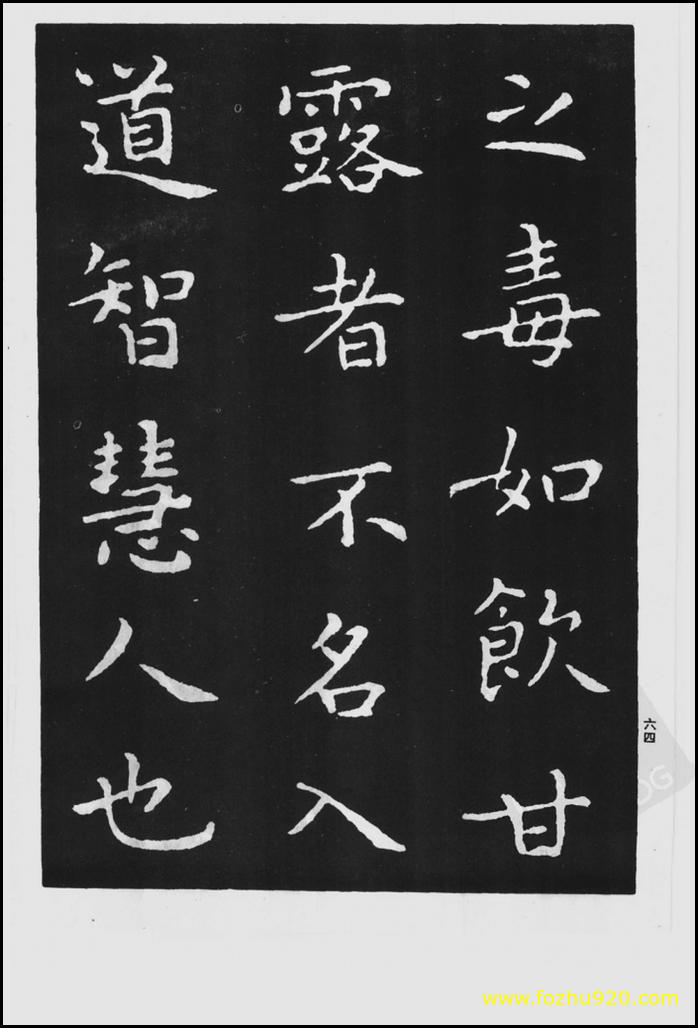 之毒如飲甘
露者不名入
道智慧人也
六四
www.fozhu920.com